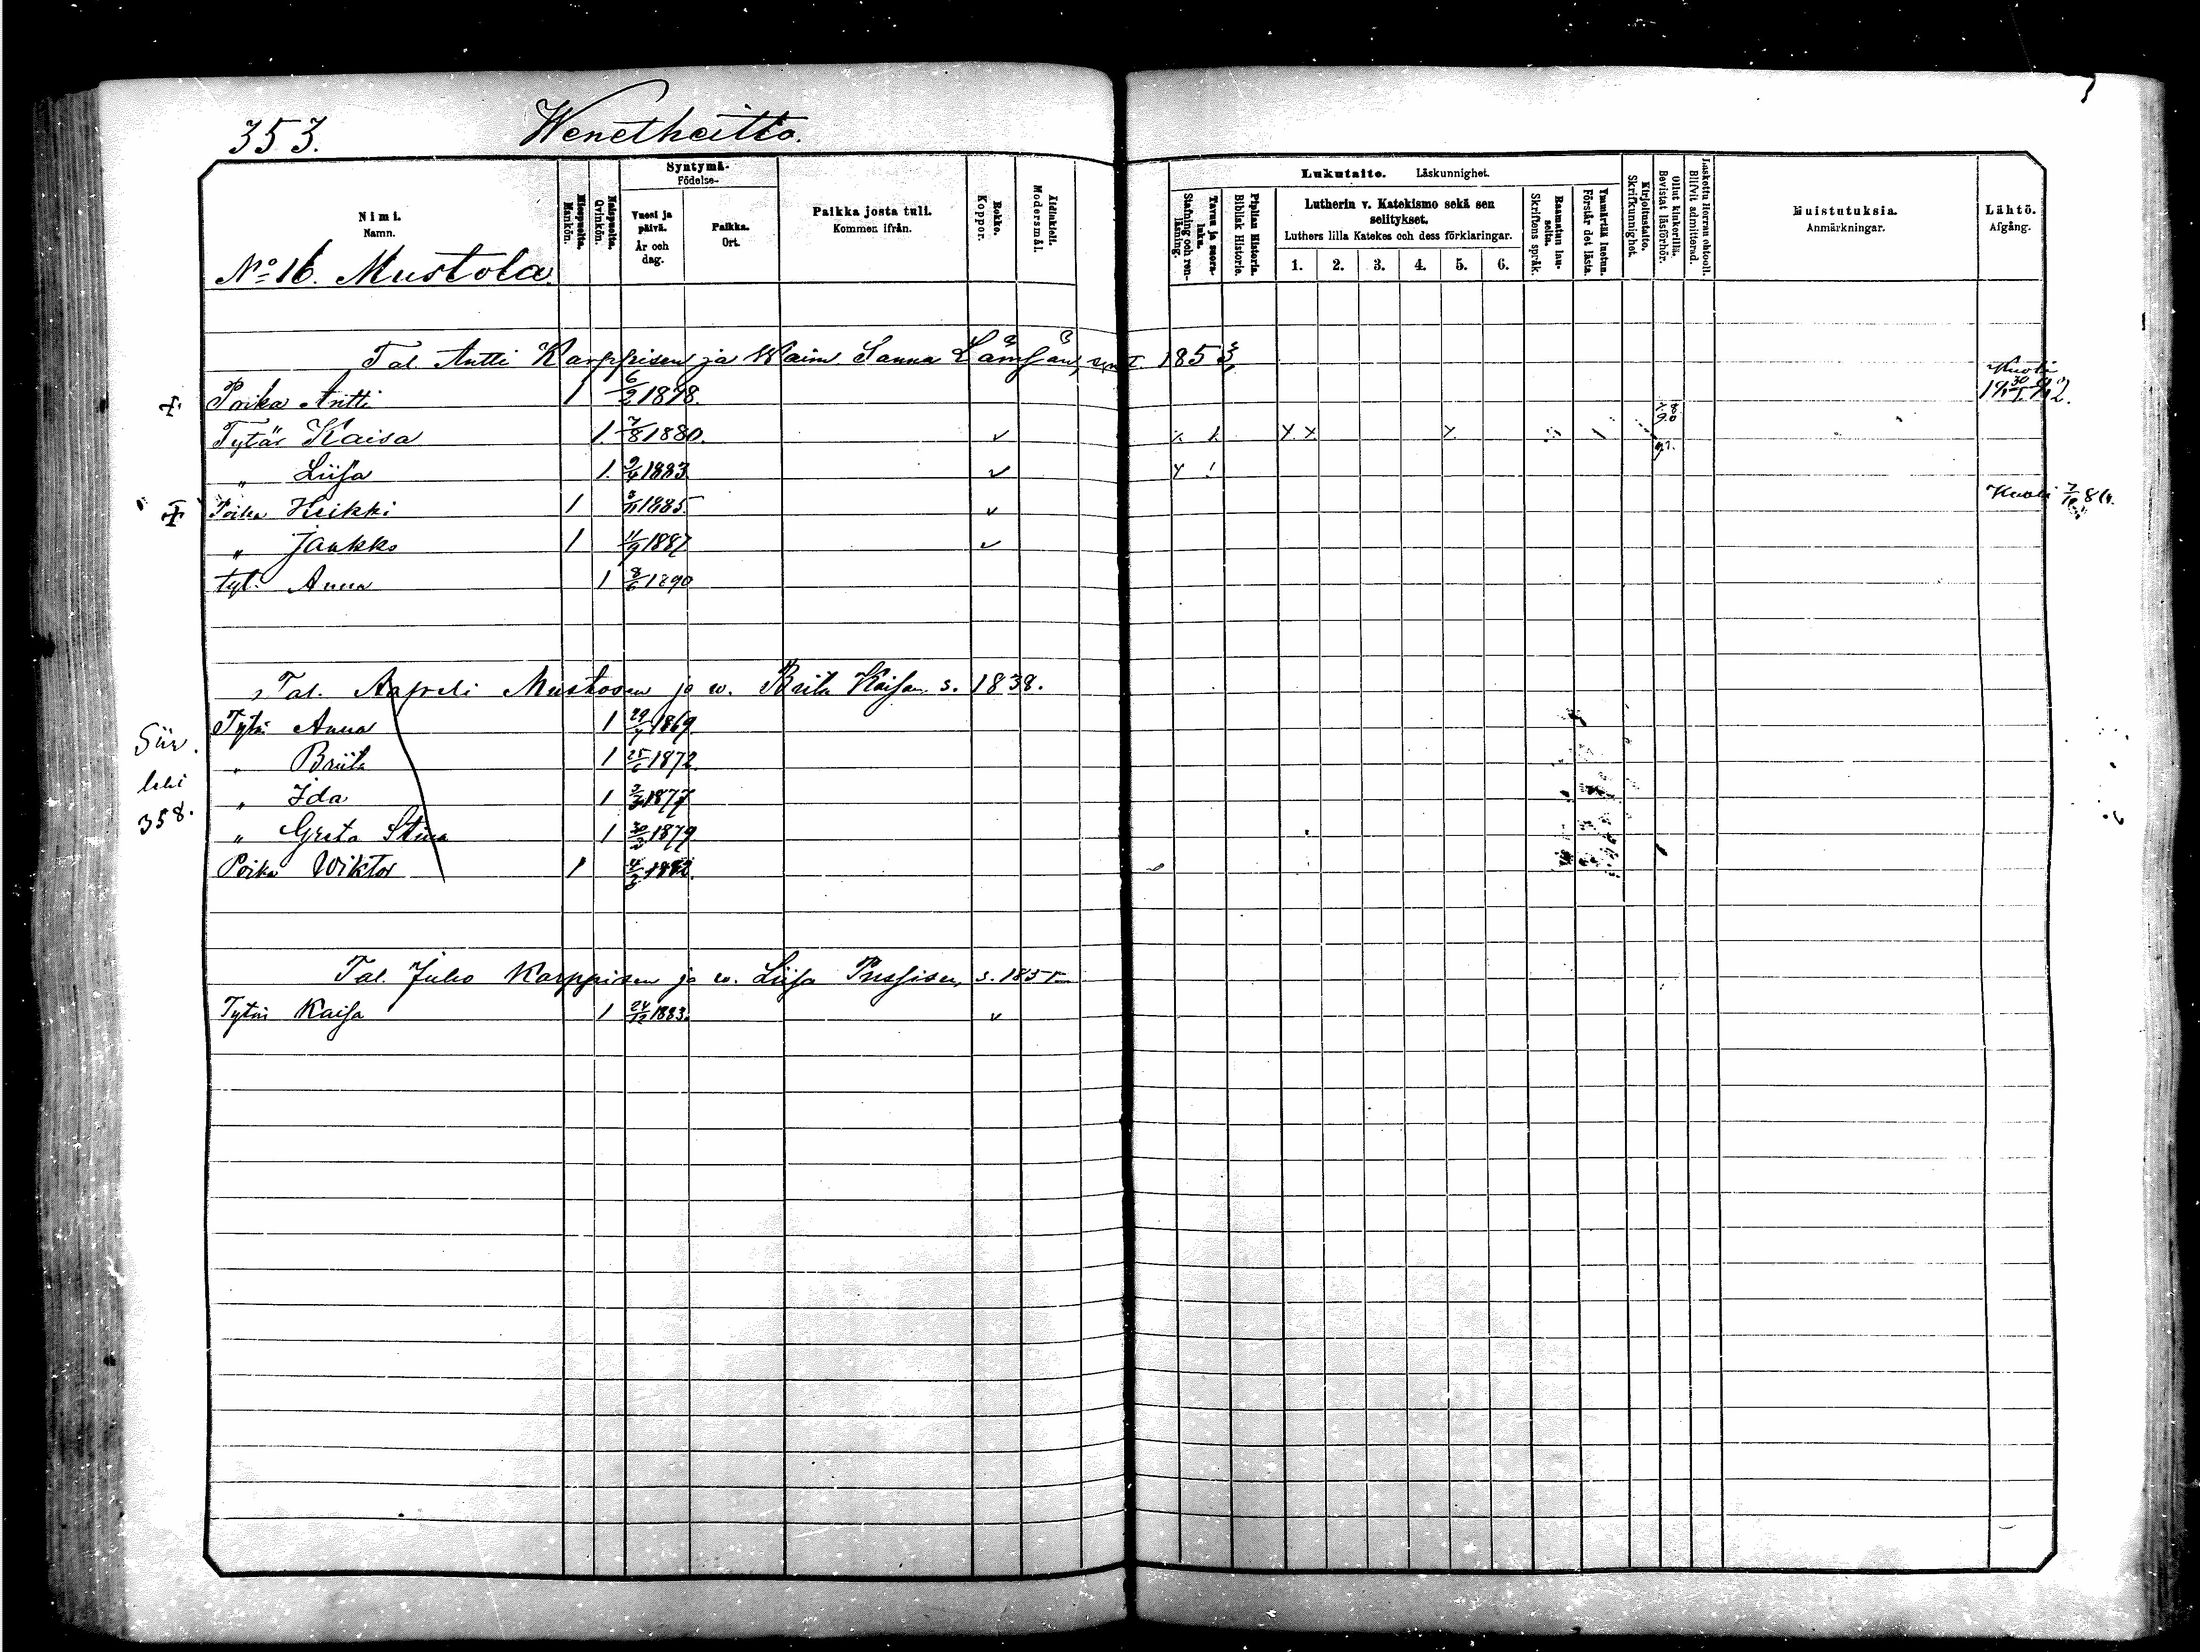 353. Wenetheitto.
Nimi. Namn.
Miespuolta. Mankön.
Naispuolta. Qvinkön.
Syntymä- Födelse-
Vuosi ja päivä. År och dag.
Paikka. Ort.
Paikka josta tuli. Kommen ifrån.
Rokko. Koppor.
Äidinkieli. Modersmål.
Tavuu ja suora- luku. Stafning och ren- läsning.
Piplian Historia. Biblisk Historie.
Lukutaito. Läskunnighet.
Lutherin v. Katekismo sekä sen selitykset.
Luthers lilla Katekes och dess förklaringar.
1. 2. 3. 4. 5. 6.
Raamatun lau- seita. Skriftens språk.
Ymmärtää luetun. Förstår det lästa.
Kirjoitustaito. Skrifkunnighet.
Ollut kinkerillä. Bevistat läsförhör.
Laskettu Herran ehtooll. Blifvit admitterad.
Muistutuksia. Anmärkningar.
Lähtö. Afgång.
No 16. Mustola.
Tal. Antti Karppisen ja Waim. Sanna Lämsän, synt. 1853,
Poika Antti 1 6/2 1878. Kuoli
Tytär Kaisa 1. 7/8 1880.
" Liisa 1. 2/4 1883
Poika Heikki 1 1885. Kuoli 7/10 86.
" Jaakko 1 11/9 1887
tyt. Anna 1 8/6 1890
Tal. Aapeli Mustosen ja w. Brita Kaisan s. 1838.
Tytär Anna 1 1869
Siir.
" Briita 1 25/6 1872
lehti
" Ida 1 1877
358.
" Greta Stiina 1 1879
Poika Wiktor 1
Tal. Juho Karppisen ja w. Liisa s. 185
Tytär Kaisa 1 24/12 1883.